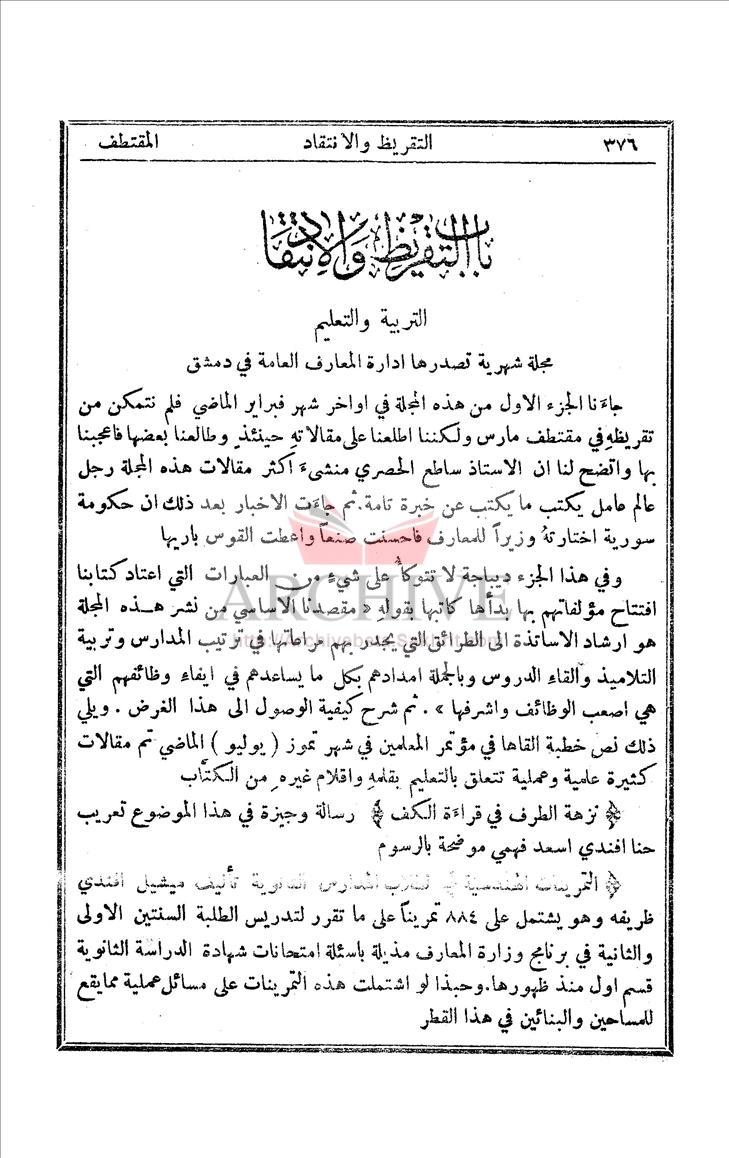 ٣٧٦ التقريظ والانتقاد المقتطف
باب التقريظ والانتقاد
التربية والتعليم
مجلة شهرية تصدرها ادارة المعارف العامة في دمشق
جاءَنا الجزء الاول من هذه المجلة في اواخر شهر فبراير الماضي فلم نتمكن من
تقريظهِ في مقتطف مارس ولكننا اطلعنا على مقالاتهِ حينئذٍ وطالعنا بعضها فاعجبنا
بها واتضح لنا ان الاستاذ ساطع الحصري منشىءَ اكثر مقالات هذه المجلة رجل
عالم عامل يكتب ما يكتب عن خبرة تامة. ثم جاءَت الاخبار بعد ذلك ان حكومة
سورية اختارتهُ وزيراً للمعارف فاحسنت صنعاً واعطت القوس باريها
وفي هذا الجزء ديباجة لا تتوكأُ على شيءٍ من العبارات التي اعتاد كتابنا
افتتاح مؤلفاتهم بها بدأها كاتبها بقوله « مقصدنا الاساسي من نشر هذه المجلة
هو ارشاد الاساتذة الى الطرائق التي يجدر بهم مراعاتها في ترتيب المدارس وتربية
التلاميذ وألقاء الدروس وبالجملة امدادهم بكل ما يساعدهم في ايفاء وظائفهم التي
هي اصعب الوظائف واشرفها » . ثم شرح كيفية الوصول الى هذا الغرض . ويلي
ذلك نص خطبة القاها في مؤتمر المعلمين في شهر تموز ( يوليو ) الماضي ثم مقالات
كثيرة علمية وعملية تتعلق بالتعليم بقلمهِ واقلام غيرهِ من الكتَّاب
﴿ نزهة الطرف في قراءَة الكف ﴾ رسالة وجيزة في هذا الموضوع تعريب
حنا افندي اسعد فهمي موضحة بالرسوم
﴿ التمرينات الهندسية ﴾ لطلاب المدارس الثانوية تأليف ميشيل افندي
ظريفه وهو يشتمل على ٨٨٤ تمريناً على ما تقرر لتدريس الطلبة السنتين الاولى
والثانية في برنامج وزارة المعارف مذيلة باسئلة امتحانات شهادة الدراسة الثانوية
قسم اول منذ ظهورها. وحبذا لو اشتملت هذه التمرينات على مسائل عملية مما يقع
للمساحين والبنائين في هذا القطر
ARCHIVE